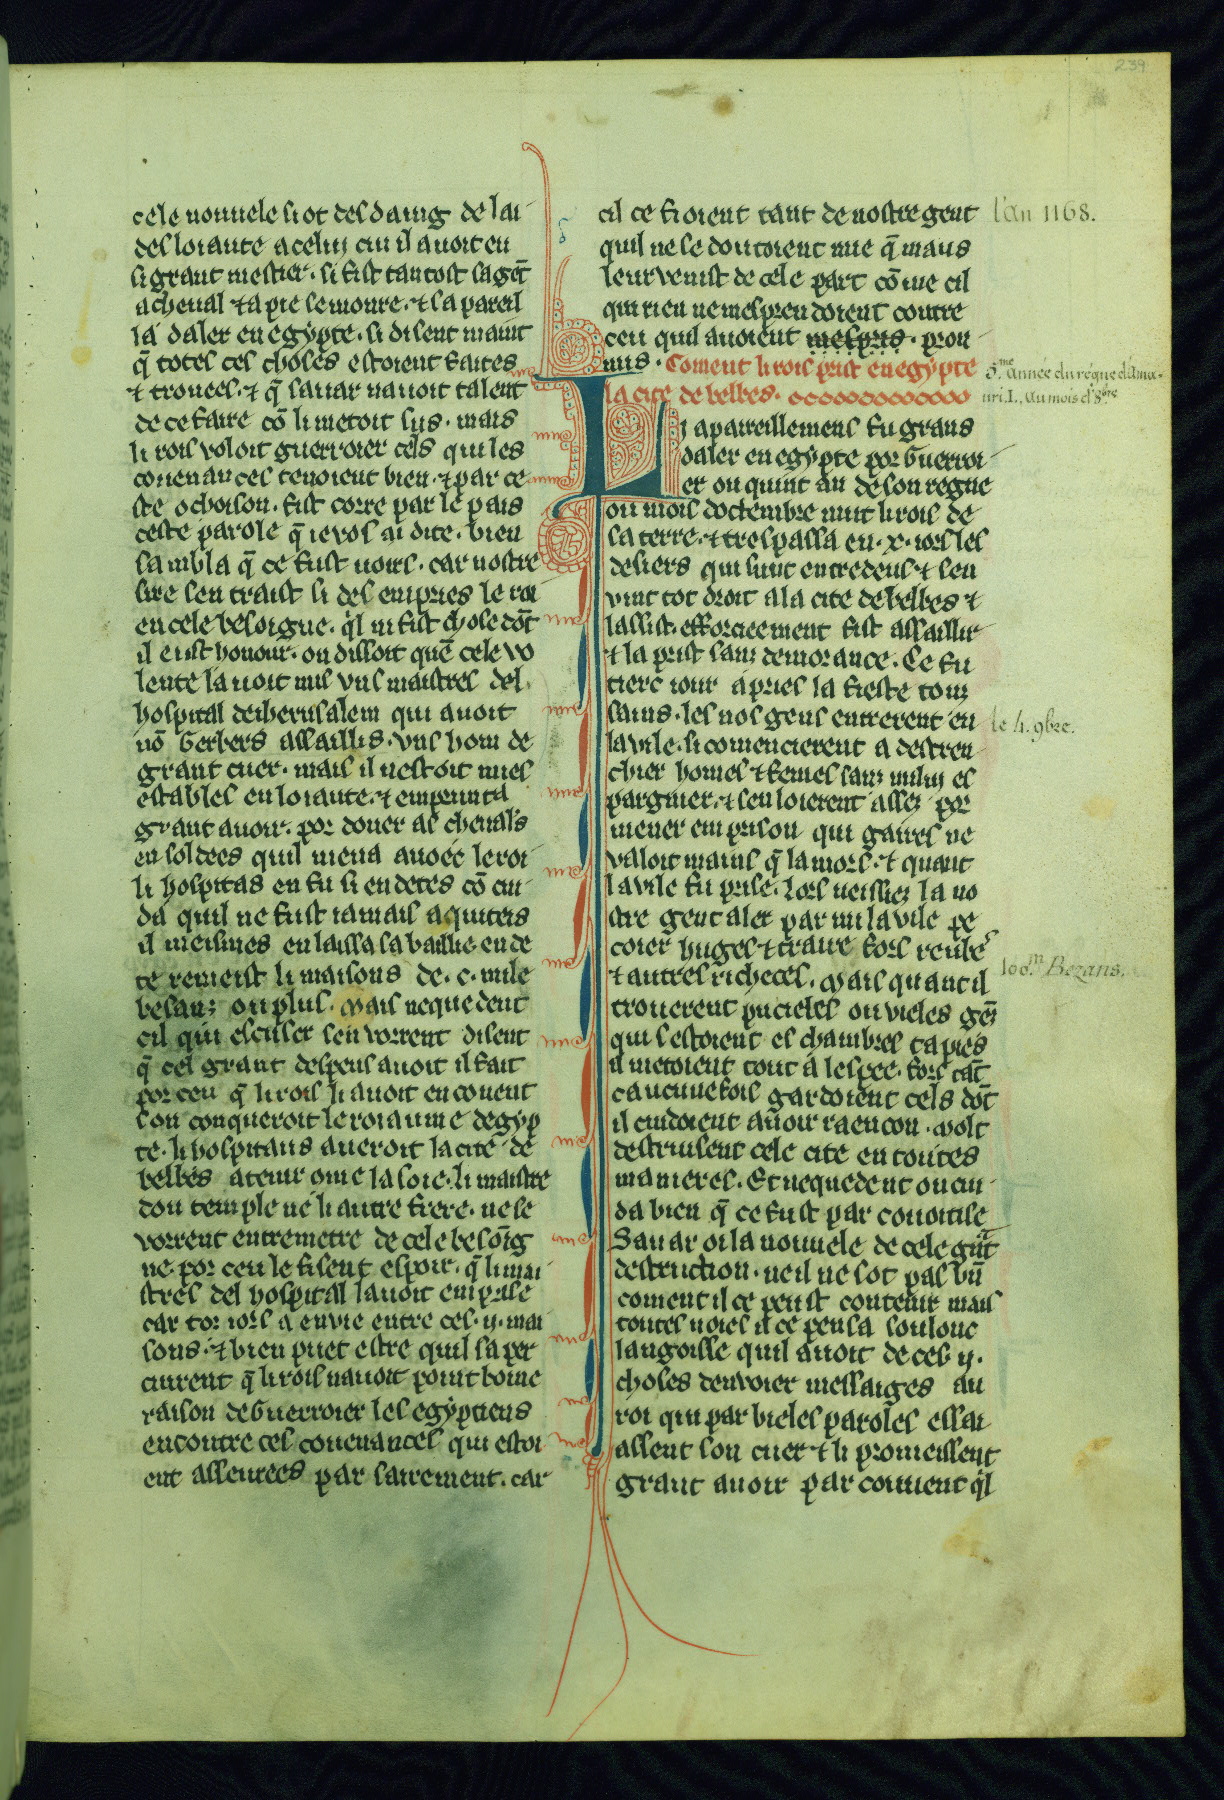 239
cele nouuele si ot desdaing de lai
desloiaute a celui cui il auoit eu
si grant mestier. si fist tantost sa gēt
a cheual ⁊ a pie semonre. ⁊ sapareil
la daler en egypte. si disent maint
q̄ totes ces choses estoient faites
⁊ trouees. ⁊ q̄ sauar nauoit talent
de ce faire cō li metoit sus. mais
li rois voloit guerroier cels qui les
couenances tenoient bien. ⁊ par ce
ste ochoison. fist corre par le pais
ceste parole q̄ ie vos ai dite. bien
sambla q̄ ce fust uoirs. car nostre
sire sen traist si des enpries le roi
en cele besoigne. q̓l ni fist chose dōt
il eust honour. on dissoit quē cele vo
lente lauoit mis vns maistres del
hospital de iherusalem qui auoit
nō Gerbers assaillis. vns hom de
grant cuer. mais il nestoit mies
estables en loiaute. ⁊ emprunta
grant auoir. por doner as cheuals
en soldees quil mena auoec le roi
li hospitas en fu si endetes cō cui
da quil ne fust iamais aquiteis
il meismes en laissa sa baillie en de
te remeist li maisons de .c. mile
besanz ou plus. mais nequedent
cil qui escuser sen vorrent disent
q̄ cel grant despens auoit il fait
por ceu q̄ li rois li auoit en couent
son conqueroit le roiaume degyp
te. li hospitaus aueroit la cite de
belbes a tenir ome la soie. li maistre
dou temple ne li autre frere. ne se
vorrent entremetre de cele besōig
ne. por ceu le fisent espoir. q̄ li mai
stres del hospital lauoit emprise
car toz iors a envie entre ces .ij. mai
sons. ⁊ bien puet estre quil saper
ciurent q̄ li rois nauoit point boine
raison de Guerroier les egyptiens
encontre ces couenances qui estoi
ent asseurees par sairement. car
cil ce fioient tant de nostre gent
quil ne se doutoient mie q̄ maus
leur venist de cele part cōme cil
qui rien ne mesprendoient contre
ceu quil auoient mespris. prou
mis. Coment li rois prist en egypte
la cite de belbes.
Li apareillemens fu grans
daler en egypte por Guerroi
er ou quint an de son regne
ou mois doctembre mut li rois de
sa terre. ⁊ trespassa en .x. iors les
desiers qui sunt entredeus ⁊ sen
vint tot droit a la cite de belbes ⁊
lassist. efforcieement fist assaillir
⁊ la prist sanz demorance. Ce fu
tierc iour apries la fieste touz
sains. les nos gens entrerent en
la vile. si comencierent a destren
chier homes ⁊ femes sanz nului es
pargnier. ⁊ sen loierent assez por
mener em prison qui gaires ne
valoit mains q̄ la mors. ⁊ quant
la vile fu prise. lors veissiez la no
stre gent aler par mi la vile pe
coier huges ⁊ traire fors reube
⁊ autres richeces. mais quant il
trouerent puceles ou vieles gēz
qui sestoient es chambres tapies
il metoient tout a lespee. fors tāt
caucune fois gardoient cels dōt
il cuidoient auoir raencon. molt
destruisent cele cite en toutes
manieres. Et nequedent ou cui
da bien q̄ ce fust par couoitise
Sauar oi la nouuele de cele grāt
destruction. ne il ne sot pas bn̄
coment il ce peust contenir mais
toutes uoies il ce pensa soulonc
langoisse quil auoit de ces .ij.
choses denvoier messaiges au
roi qui par bieles paroles essai
assent son cuer ⁊ li promeissent
grant auoir par couuent q̓l
l'an 1168.
5.me année du régne d'Amau-
uri I., au mois d'8.bre
le 4. 9bre.
100.m Bezans.